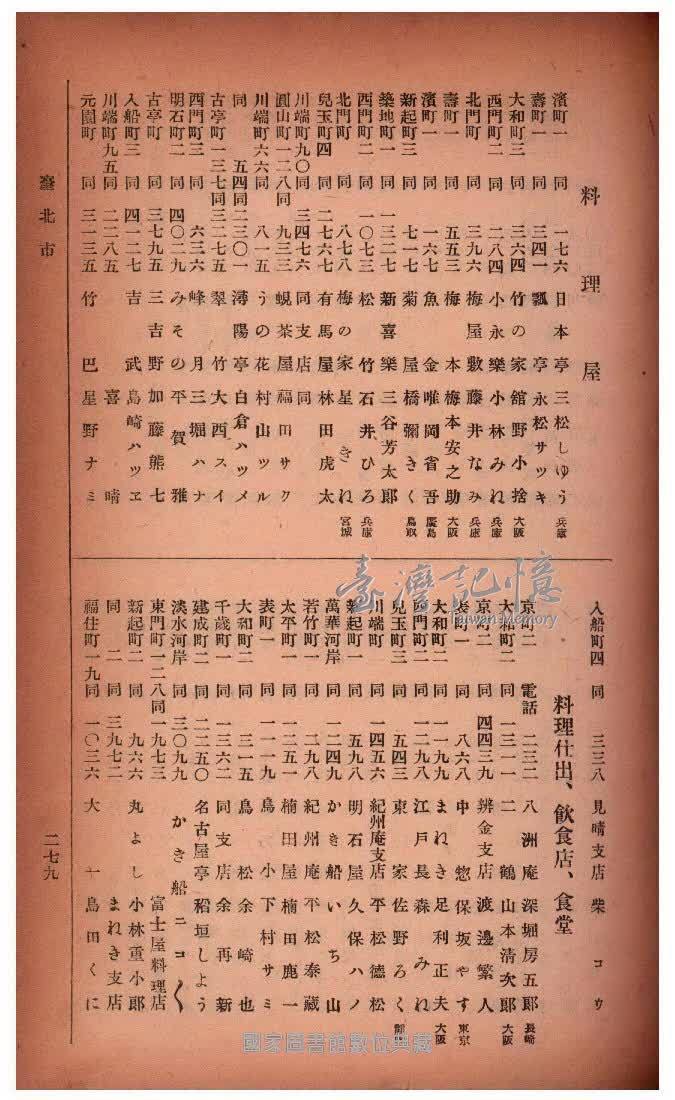 料理屋
濱町一 同 一七六 日本亭 三松しゆう 兵庫
壽町一 同 三四一 瓢亭 永松サツキ
大和町三 同 三六四 竹の家 舘野小捨 大阪
西門町二 同 二八四 小永樂 小林みね 兵庫
北門町 同 三九六 梅屋敷 藤井なみ 兵庫
壽町一 同 五五三 梅本 梅本安之助 大阪
濱町一 同 一六七 魚金 唯岡省吾 廣島
新起町三 同 七一七 菊屋 橋彌きく 鳥取
築地町一 同 一三二七 新喜樂 三谷芳太郎
西門町二 同 一〇七三 松竹 石井ひろ 兵庫
北門町 同 八七八 梅の家 星きね 宮城
兒玉町四 同 二七六七 有馬屋 林田虎太
川端町九〇 同 三四七六 同支店 同
圓山町一二八 同 九三三 蜆茶屋 福田サク
川端町六六 同 八一五 うの花 村山ツル
同 五四 同 二三〇一 潯陽亭 白倉ハツメ
古亭町一三七 同 三二七五 翠竹 大西スイ
西門町三 同 六三六 峰月 三堀ハナ
明石町二 同 四〇二九 みその 平賀雅
古亭町 同 三七九五 三吉野 加藤熊七
入船町三 同 四一二七 吉武 島崎ハツヱ
川端町九五 同 二二八五 喜晴
元園町 同 三一三五 竹巴 星野ナミ
入船町四 同 三三八 見晴支店 柴コウ
料理仕出、飲食店、食堂
京町二 電話 二三二 八洲庵 深堀房五郎 長崎
大和町二 同 一三一一 二鶴 山本清次郎 大阪
京町二 同 四四三九 辨金支店 渡邊繁人
表町一 同 八六八 中惣 保坂やす 東京
大和町二 同 一一九九 まねき 足利正夫 大阪
西門町二 同 一二九八 江戸長 森みね
兒玉町三 同 五四三 東家 佐野ろく
川端町 同 一四五六 紀州庵支店 平松德松
新起町一 同 五九八 明石屋 久保ハノ
萬華河岸 同 一二四九 かき船 いち山
若竹町一 同 二九八 紀州庵 平松泰藏
太平町一 同 一二五一 楠田屋 楠田鹿一
表町一 同 一一一九 鳥小 下村サミ
大和町二 同 三一五 鳥松 余崎也
千歲町一 同 一三六二 同支店 余再新
建成町二 同 二二五〇 名古屋亭 稻垣しよう
淡水河岸 同 三〇九九 かき船ニコ〱
東門町一二八 同 一九七三 富士屋料理店
新起町二 同 九六六 丸よし 小林重小郎
同 二 同 三九七二 まねき支店
福住町一九 同 一〇三六 大十 島田くに
臺北市
二七九
臺灣記憶
Taiwan Memory
國家圖書館數位典藏